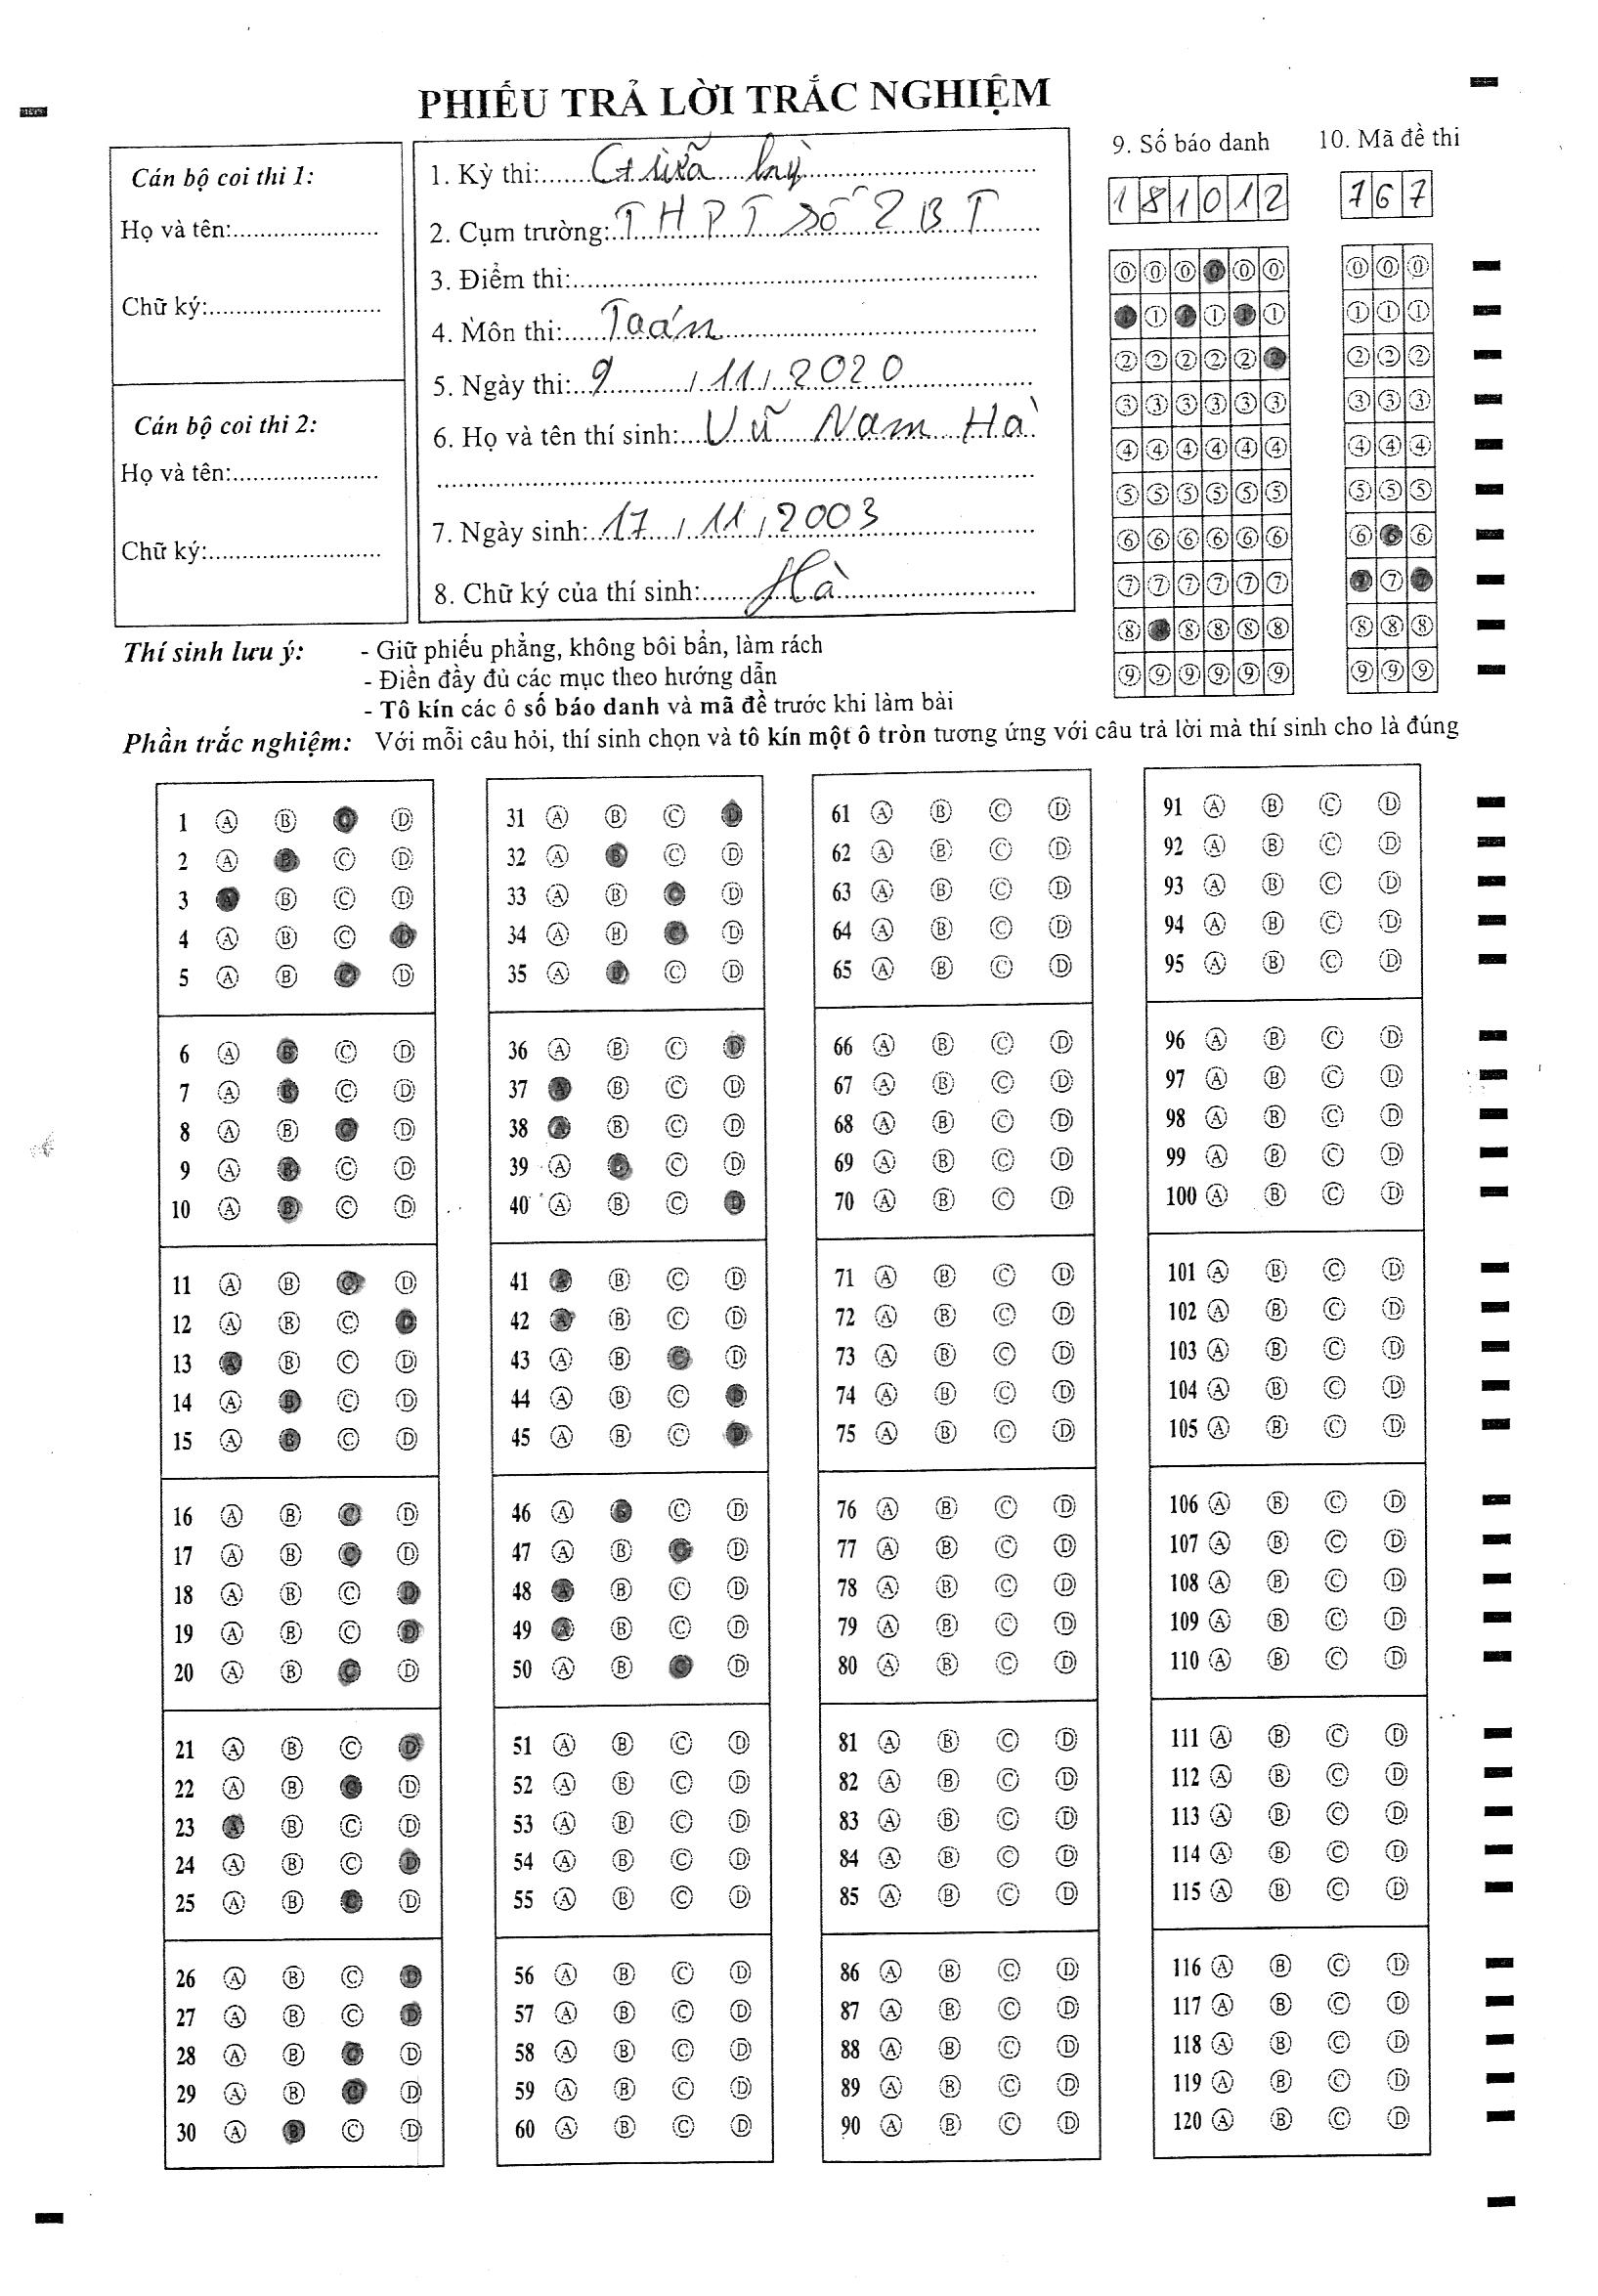 PHIẾU TRẢ LỜI TRẮC NGHIỆM
Cán bộ coi thi 1:
Họ và tên:.....................
Chữ ký:.........................
Cán bộ coi thi 2:
Họ và tên:.....................
Chữ ký:.........................
1. Kỳ thi: Giữa kỳ
2. Cụm trường: THPT số 2 BT
3. Điểm thi:
4. Môn thi: Toán
5. Ngày thi: 9 / 11 / 2020
6. Họ và tên thí sinh: Vũ Nam Hà
7. Ngày sinh: 17 / 11 / 2003
8. Chữ ký của thí sinh: Hà
9. Số báo danh
181012
0 0 0 0 0 0
1 1 1 1 1 1
2 2 2 2 2 2
3 3 3 3 3 3
4 4 4 4 4 4
5 5 5 5 5 5
6 6 6 6 6 6
7 7 7 7 7 7
8 8 8 8 8 8
9 9 9 9 9 9
10. Mã đề thi
767
0 0 0
1 1 1
2 2 2
3 3 3
4 4 4
5 5 5
6 6 6
7 7 7
8 8 8
9 9 9
Thí sinh lưu ý: - Giữ phiếu phẳng, không bôi bẩn, làm rách
- Điền đầy đủ các mục theo hướng dẫn
- Tô kín các ô số báo danh và mã đề trước khi làm bài
Phần trắc nghiệm: Với mỗi câu hỏi, thí sinh chọn và tô kín một ô tròn tương ứng với câu trả lời mà thí sinh cho là đúng
1 A B C D
2 A B C D
3 A B C D
4 A B C D
5 A B C D
6 A B C D
7 A B C D
8 A B C D
9 A B C D
10 A B C D
11 A B C D
12 A B C D
13 A B C D
14 A B C D
15 A B C D
16 A B C D
17 A B C D
18 A B C D
19 A B C D
20 A B C D
21 A B C D
22 A B C D
23 A B C D
24 A B C D
25 A B C D
26 A B C D
27 A B C D
28 A B C D
29 A B C D
30 A B C D
31 A B C D
32 A B C D
33 A B C D
34 A B C D
35 A B C D
36 A B C D
37 A B C D
38 A B C D
39 A B C D
40 A B C D
41 A B C D
42 A B C D
43 A B C D
44 A B C D
45 A B C D
46 A B C D
47 A B C D
48 A B C D
49 A B C D
50 A B C D
51 A B C D
52 A B C D
53 A B C D
54 A B C D
55 A B C D
56 A B C D
57 A B C D
58 A B C D
59 A B C D
60 A B C D
61 A B C D
62 A B C D
63 A B C D
64 A B C D
65 A B C D
66 A B C D
67 A B C D
68 A B C D
69 A B C D
70 A B C D
71 A B C D
72 A B C D
73 A B C D
74 A B C D
75 A B C D
76 A B C D
77 A B C D
78 A B C D
79 A B C D
80 A B C D
81 A B C D
82 A B C D
83 A B C D
84 A B C D
85 A B C D
86 A B C D
87 A B C D
88 A B C D
89 A B C D
90 A B C D
91 A B C D
92 A B C D
93 A B C D
94 A B C D
95 A B C D
96 A B C D
97 A B C D
98 A B C D
99 A B C D
100 A B C D
101 A B C D
102 A B C D
103 A B C D
104 A B C D
105 A B C D
106 A B C D
107 A B C D
108 A B C D
109 A B C D
110 A B C D
111 A B C D
112 A B C D
113 A B C D
114 A B C D
115 A B C D
116 A B C D
117 A B C D
118 A B C D
119 A B C D
120 A B C D